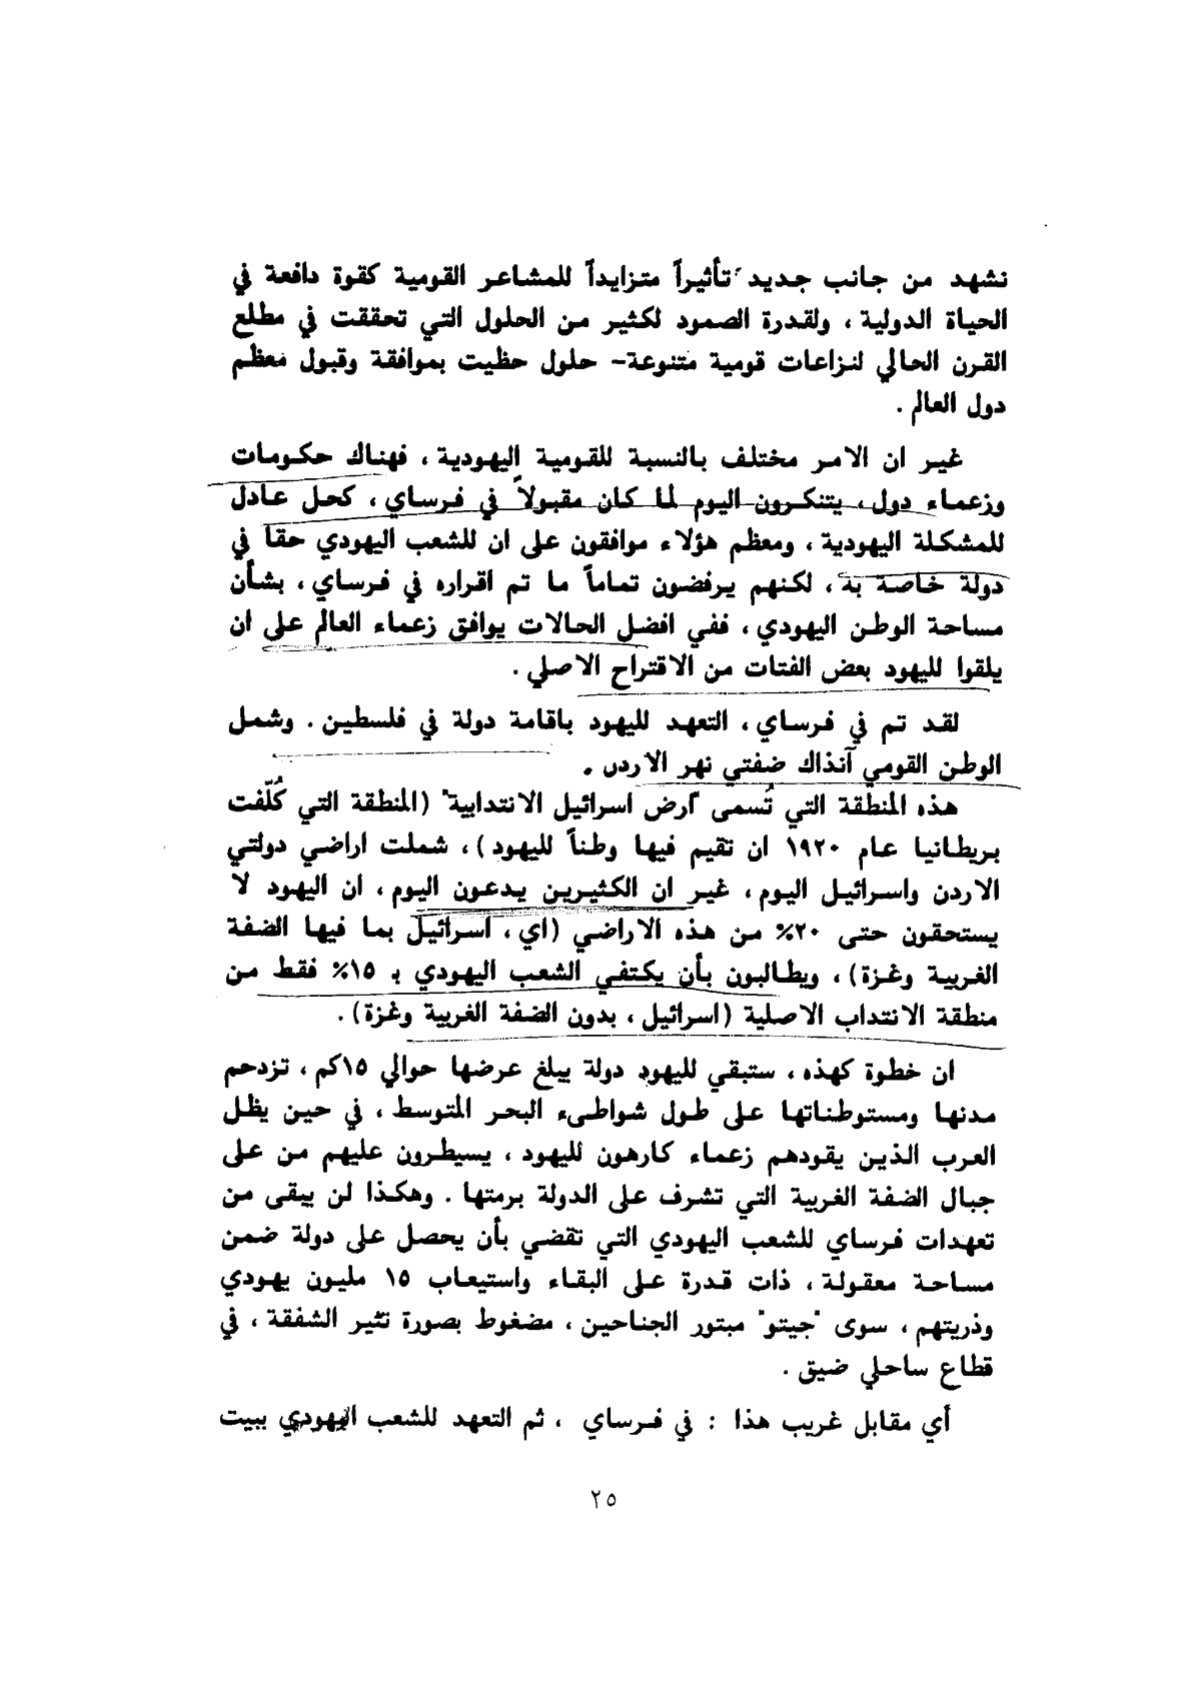 نشهد من جانب جديد تأثيراً متزايداً للمشاعر القومية كقوة دافعة في
الحياة الدولية ، ولقدرة الصمود لكثير من الحلول التي تحققت في مطلع
القرن الحالي لنزاعات قومية متنوعة- حلول حظيت بموافقة وقبول معظم
دول العالم .
غير ان الامر مختلف بالنسبة للقومية اليهودية ، فهناك حكومات
وزعماء دول ، يتنكرون اليوم لما كان مقبولاً في فرساي ، كحل عادل
للمشكلة اليهودية ، ومعظم هؤلاء موافقون على ان للشعب اليهودي حقاً في
دولة خاصة به ، لكنهم يرفضون تماماً ما تم اقراره في فرساي ، بشأن
مساحة الوطن اليهودي ، ففي افضل الحالات يوافق زعماء العالم على ان
يلقوا لليهود بعض الفتات من الاقتراح الاصلي .
لقد تم في فرساي ، التعهد لليهود باقامة دولة في فلسطين . وشمل
الوطن القومي آنذاك ضفتي نهر الاردن .
هذه المنطقة التي تُسمى "ارض اسرائيل الانتدابية" (المنطقة التي كُلّفت
بريطانيا عام ١٩٢٠ ان تقيم فيها وطناً لليهود) ، شملت اراضي دولتي
الاردن واسرائيل اليوم ، غير ان الكثيرين يدعون اليوم ، ان اليهود لا
يستحقون حتى ٢٠٪ من هذه الاراضي (اي ، اسرائيل بما فيها الضفة
الغربية وغزة) ، ويطالبون بأن يكتفي الشعب اليهودي بـ ١٥٪ فقط من
منطقة الانتداب الاصلية (اسرائيل ، بدون الضفة الغربية وغزة) .
ان خطوة كهذه ، ستبقي لليهود دولة يبلغ عرضها حوالي ١٥كم ، تزدحم
مدنها ومستوطناتها على طول شواطىء البحر المتوسط ، في حين يظل
العرب الذين يقودهم زعماء كارهون لليهود ، يسيطرون عليهم من على
جبال الضفة الغربية التي تشرف على الدولة برمتها . وهكذا لن يبقى من
تعهدات فرساي للشعب اليهودي التي تقضي بأن يحصل على دولة ضمن
مساحة معقولة ، ذات قدرة على البقاء واستيعاب ١٥ مليون يهودي
وذريتهم ، سوى "جيتو" مبتور الجناحين ، مضغوط بصورة تثير الشفقة ، في
قطاع ساحلي ضيق .
أي مقابل غريب هذا : في فرساي ، تم التعهد للشعب اليهودي ببيت
٢٥